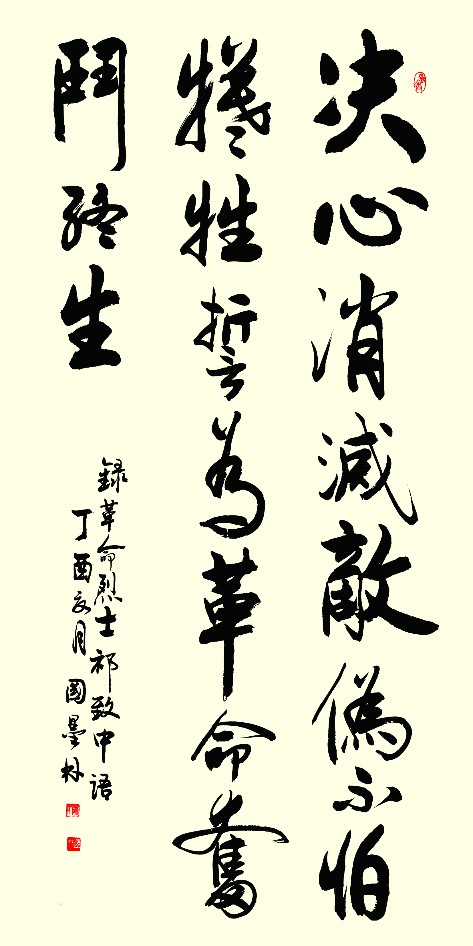 决心消滅敵偽不怕
犧牲誓為革命奮
鬥終生
録革命烈士祁致中语
丁酉亥月國墨林